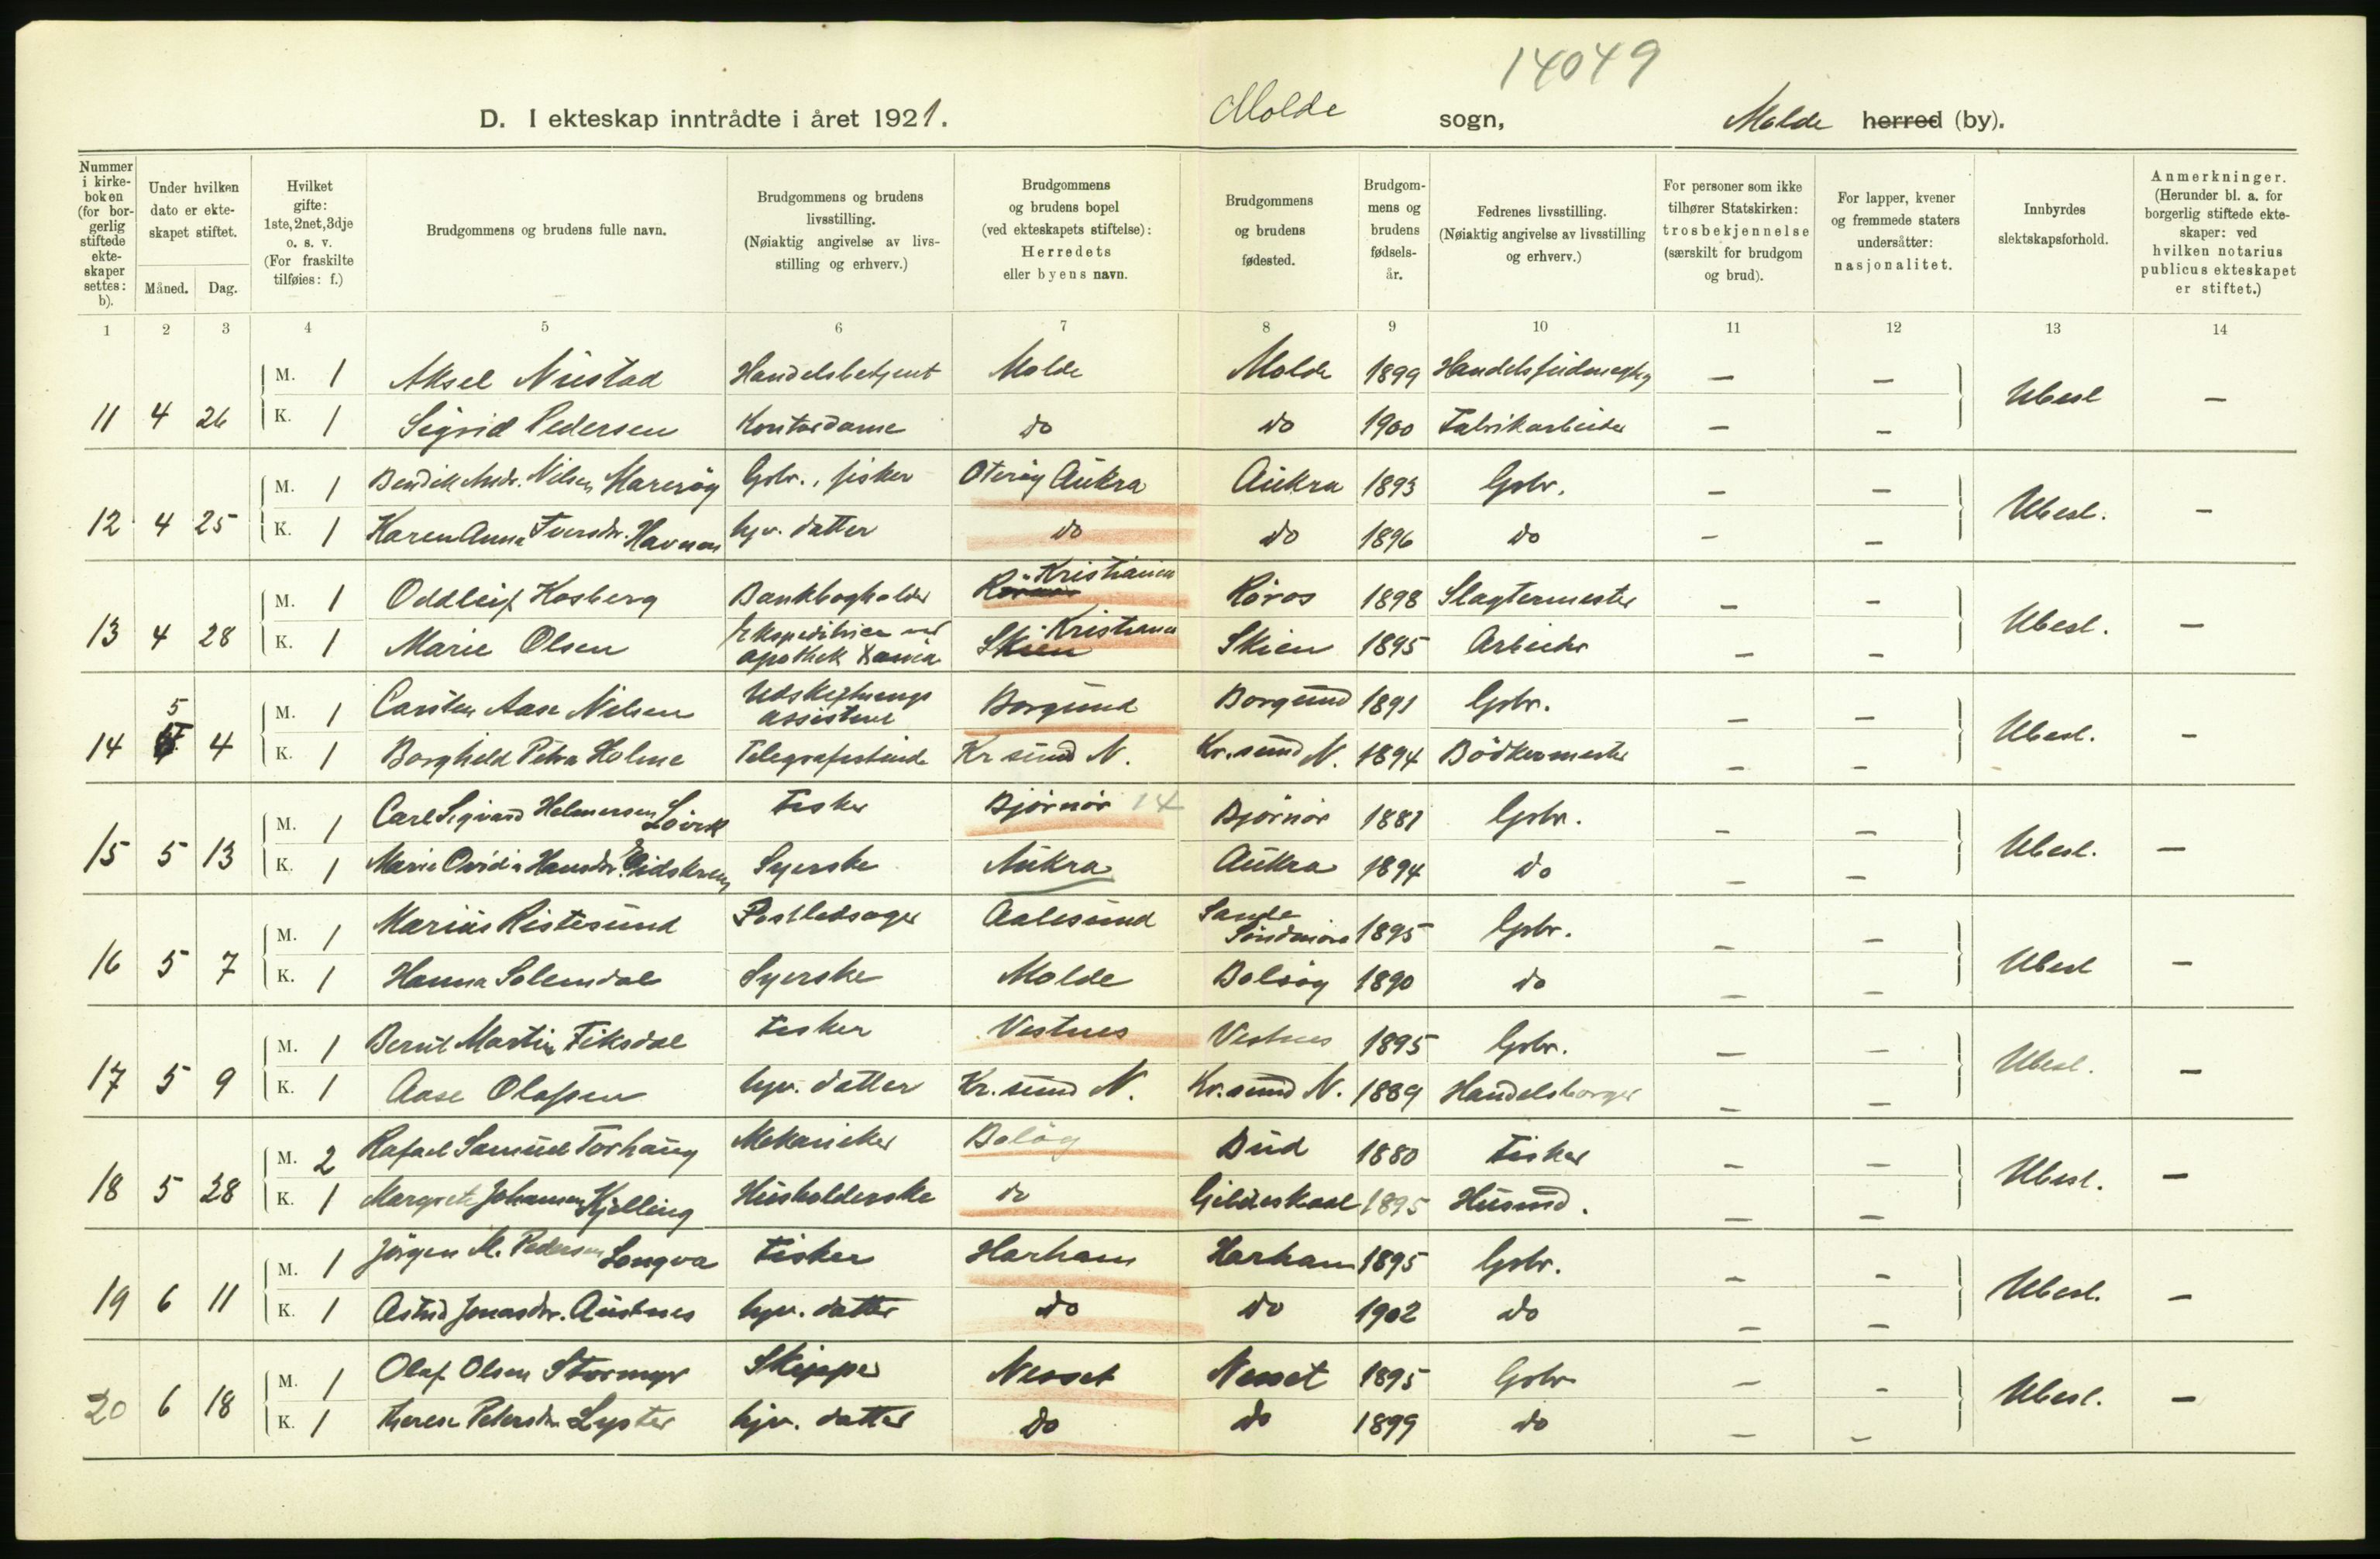 14049
D. I ekteskap inntrådte i året 1921. Molde sogn, Molde herred (by).
Nummer i kirkeboken (for borgerlig stiftede ekteskaper settes: b).
Under hvilken dato er ekteskapet stiftet.
Måned. Dag.
Hvilket gifte: 1ste, 2net, 3dje o. s. v. (For fraskilte tilføies: f.)
Brudgommens og brudens fulle navn.
Brudgommens og brudens livsstilling. (Nøiaktig angivelse av livsstilling og erhverv.)
Brudgommens og brudens bopel (ved ekteskapets stiftelse): Herredets eller byens navn.
Brudgommens og brudens fødested.
Brudgommens og brudens fødselsår.
Fedrenes livsstilling. (Nøiaktig angivelse av livsstilling og erhverv.)
For personer som ikke tilhører Statskirken: trosbekjennelse (særskilt for brudgom og brud).
For lapper, kvener og fremmede staters undersåtter: nasjonalitet.
Innbyrdes slektskapsforhold.
Anmerkninger. (Herunder bl. a. for borgerlig stiftede ekteskaper: ved hvilken notarius publicus ekteskapet er stiftet.)
1 2 3 4 5 6 7 8 9 10 11 12 13 14
M. 1 Aksel Nustad Handelsbetjent Molde Molde 1899 — —
11 4 26 K. 1 Sigrid Pedersen Kontordame do do 1900 Fabrikarbeider — — Ubesl —
M. 1 Bendik Andr. Nilsen Marerøy Gbr., fisker Oterøy Aukra Aukra 1893 Gbr. — —
12 4 25 K. 1 Karen Anna Iversdr. Havnen hjv. datter do do 1896 do — — Ubesl. —
M. 1 Oddleif Kosberg Bankbogholder Röros Kristiania Röros 1898 Slagtermester — —
13 4 28 K. 1 Marie Olsen Ekspeditrice ved apothek Xania Skien Kristiania Skien 1895 Arbeider — — Ubesl. —
M. 1 Carsten Aase Nilsen Udskiftnings assistent Borgund Borgund 1891 Gbr. — —
14 5 4 K. 1 Borghild Petra Holme Telegrafistinde Kr.sund N. Kr.sund N. 1894 Bödkermester — — Ubesl. —
M. 1 Carl Sigvard Helmersen Lövik Fisker Bjørnör 14 Bjørnör 1881 Gbr. — —
15 5 13 K. 1 Marie Ovidia Hansdr. Syerske Aukra Aukra 1894 do — — Ubesl. —
M. 1 Marius Ristesund Postledsager Aalesund Sande Söndmøre 1895 Gbr. — —
16 5 7 K. 1 Hanna Solemdal Syerske Molde Bolsøy 1890 do — — Ubesl —
M. 1 Bernt Martin Fiksdal Fisker Vestnes Vestnes 1895 Gbr. — —
17 5 9 K. 1 Aase Olafsen hjv. datter Kr.sund N. Kr.sund N. 1889 Handelsborger — — Ubesl. —
M. 2 Rafael Samuel Torhaug Mekaniker Bolsöy Bud 1880 Fisker — —
18 5 28 K. 1 Margrete Johansen Kjelling Husholderske do Gildeskaal 1895 Husmd. — — Ubesl. —
M. 1 Jörgen M. Pedersen Longva Fisker Harham Harham 1895 Gbr. — —
19 6 11 K. 1 Astrid Jonasdr. Austnes hjv. datter do do 1902 do — — Ubesl. —
M. 1 Olaf Olsen Stormyr Skipper Nesset Nesset 1895 Gbr — —
20 6 18 K. 1 Therese Petersdr. Lyster hjv. datter do do 1899 do — — Ubesl. —